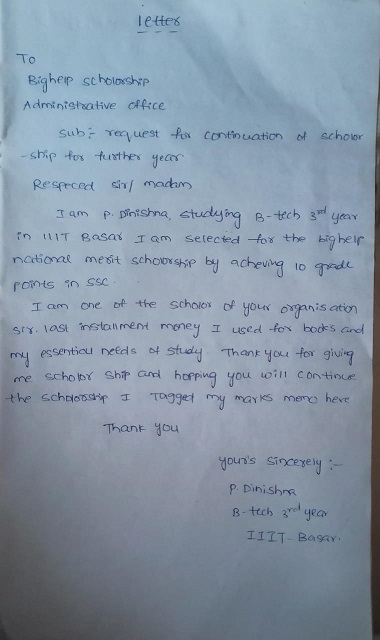 letter
To
Bighelp scholorship
Administrative office
Sub:- request for continuation of scholor
-ship for further year.
Resprced sir/ madam
I am P. Dinishna, studying B-tech 3rd year
in IIIT Basar I am selected for the bighelp
national merit scholorship by acheving 10 grade
points in SSC.
I am one of the scholor of your organisation
sir. last installment money I used for books and
my essential needs of study. Thank you for giving
me scholor ship and hopping you will continue
the scholorship I Tagged my marks memo here
Thank you
your's sincerely :-
P. Dinishna
B-tech 3rd year
IIIT- Basar.